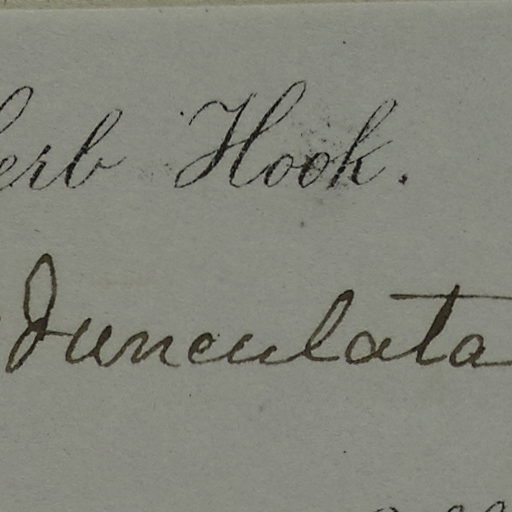 erb Hook.
dunculata